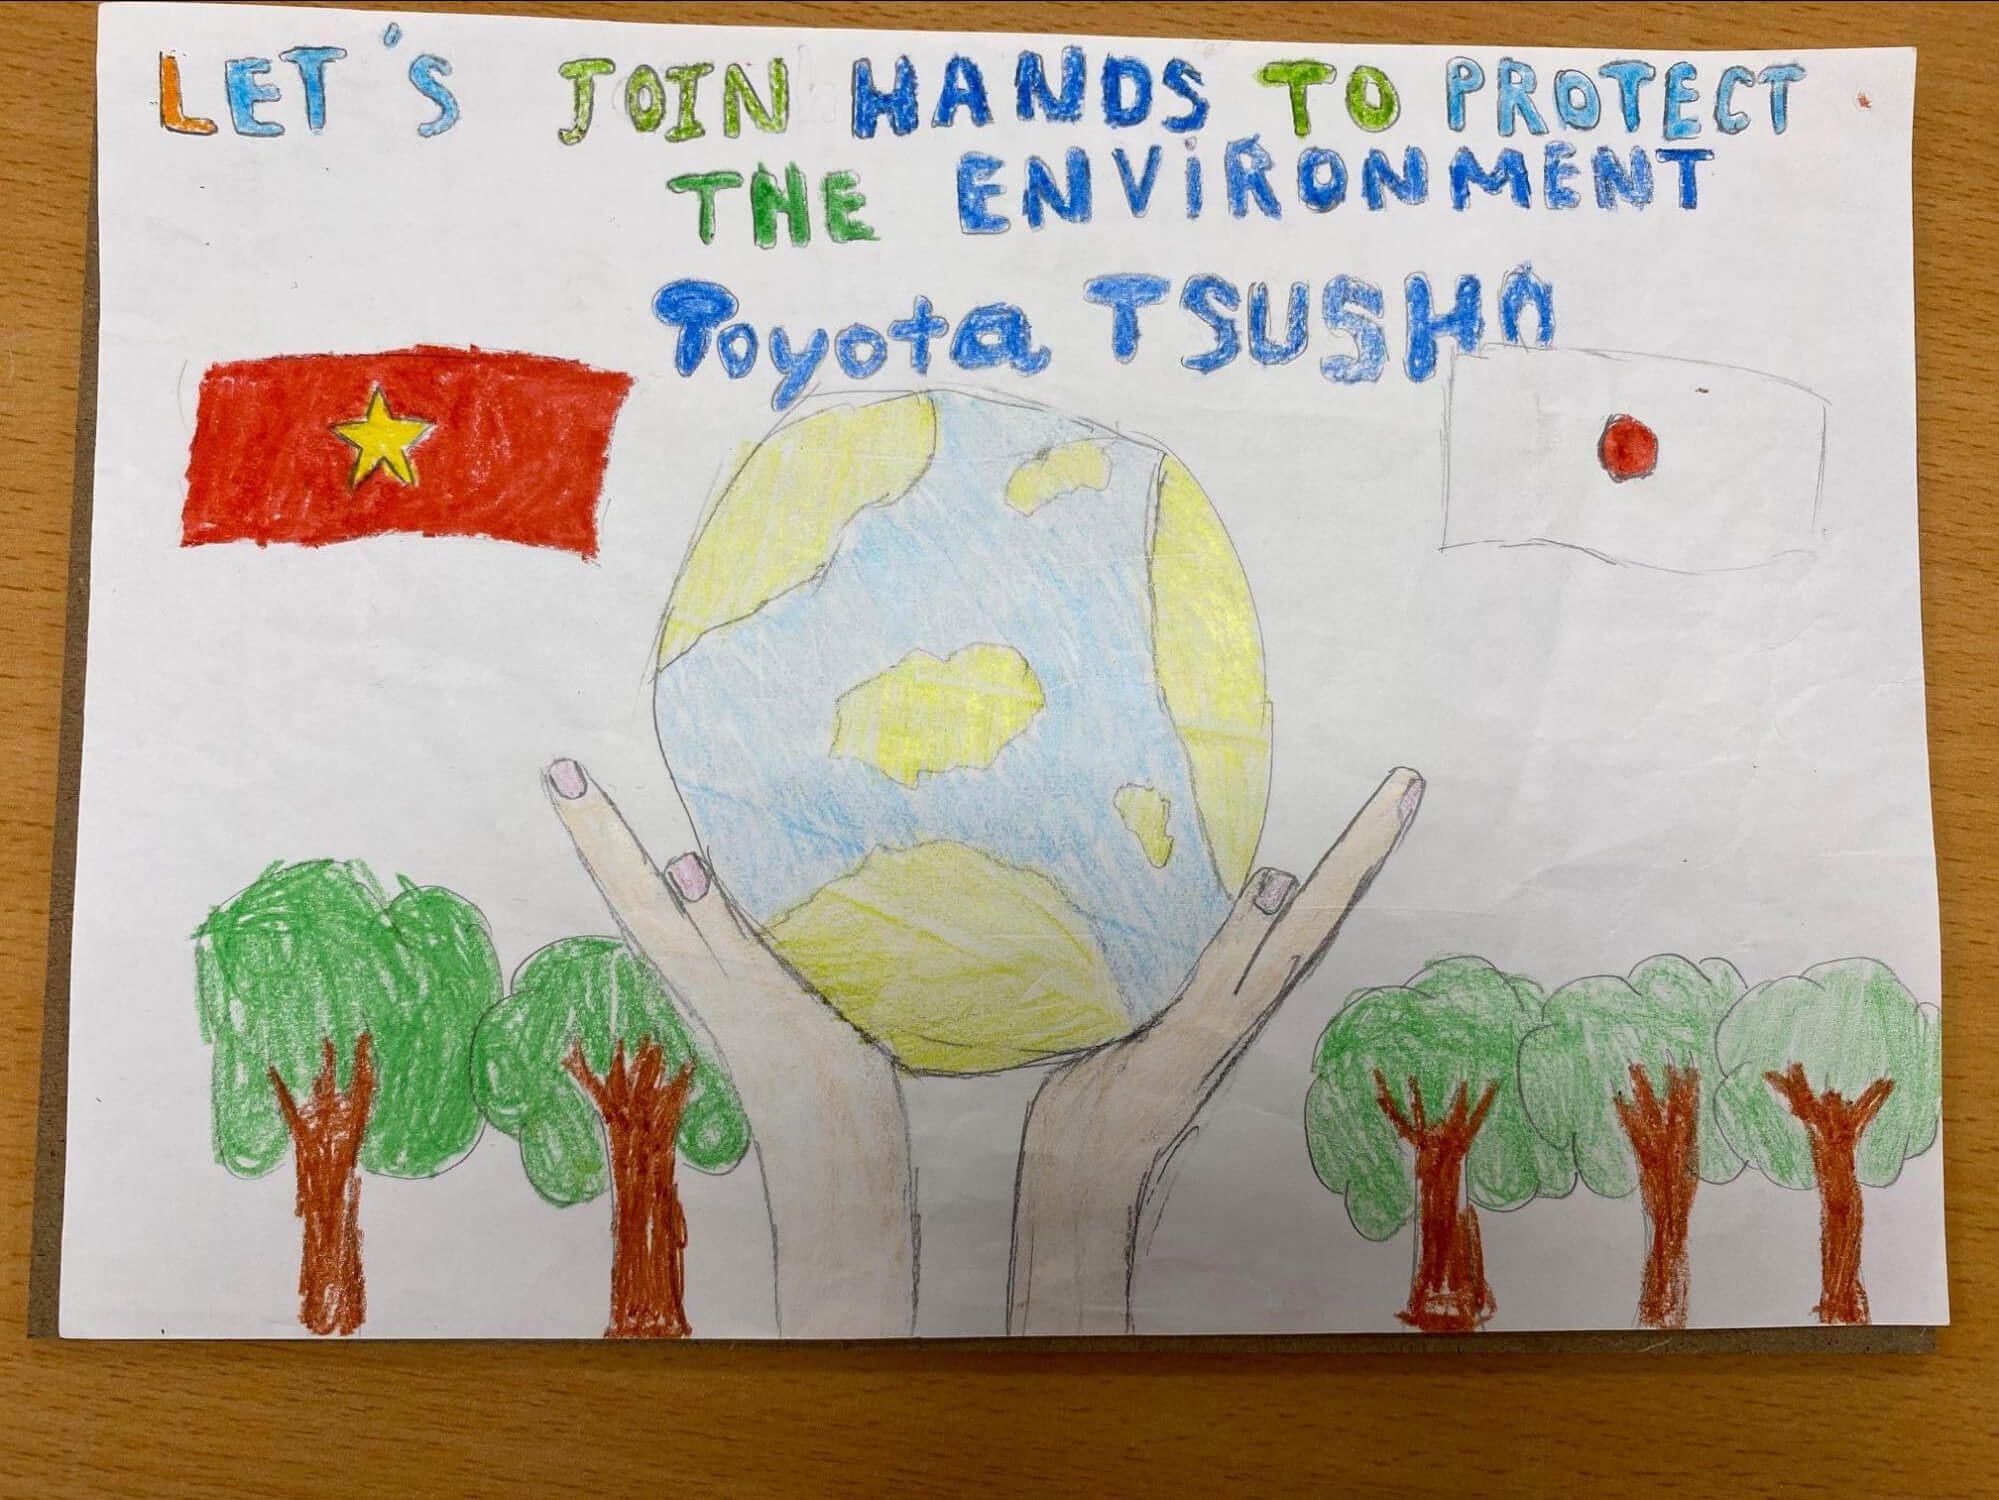 LET'S JOIN HANDS TO PROTECT
THE ENViRONMENT
Toyota TSUSHO